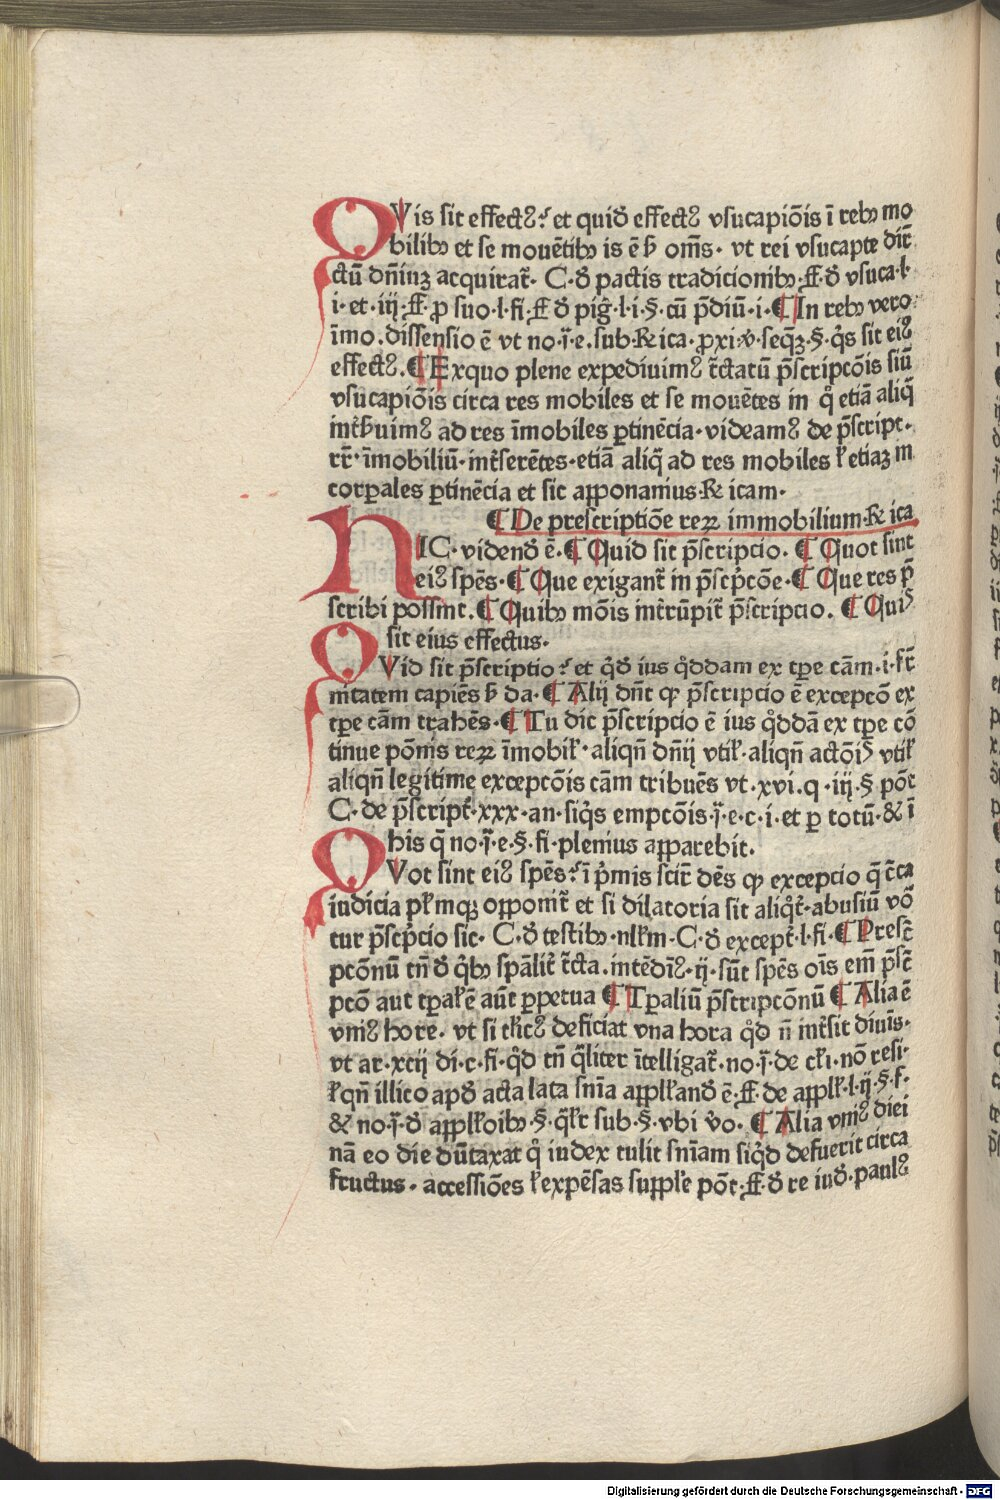 QVis sit effectꝰ? et quiđ effectꝰ vsucapiōis ī rebꝫ mo
bilibꝫ et se mouētibꝫ is ē ꝑ om̄s· vt rei vsucapte dir̄
ctū dn̄iuꝫ acquirat̄· C·đ pactis tradicionibꝫ·ff·đ vsuca·l·
i·et·iij·ff·ꝓ suo·l·fi·ff đ piḡ·l·i·§·cū p̄diū·i·¶In rebꝫ vero
īmo.dissensio ē vt no·j̄·e.sub.℞ica·ꝓxi·v̄·seqꝫ̄·§·q̄s sit eiꝰ
effectꝰ.¶Exquo plene expediuimꝰ t̄ctatū p̄scripcōis siū
vsucapiōis circa res mobiles et se mouētes in q̊ etiā aliq̄
int̄ẜuimꝰ ad res īmobiles ꝑtinēcia·videamꝰ de p̄script·
rr̄·īmobiliū·int̄serētes·etiā aliq̄ ad res mobiles ł etiaꝫ in
corꝑales ꝑtinēcia et sic apponamus·℞icam·
¶De prescriptiōe reꝝ immobilium·℞ica
HIC·videnđ ē·¶Quid sit p̄scripcio. ¶Quot sint
eiꝰ spēs·¶Que exigant̄ in p̄scp̄cōe·¶Que res p̄
scribi possint.¶Quibꝫ mōis int̄rūpit̄ p̄scripcio. ¶Quis
sit eius effectus·
QVid sit p̄scriptio? et q̊đ ius q̊ddam ex tꝑe cām·i·fir̄
mitatem capiēs ẜ da·¶Alij dn̄t ꝙ p̄scripcio ē excepcō ex
tꝑe cām trahēs·¶Tu dic p̄scripcio ē ius q̊ddā ex tꝑe cō
tinue pōnis reꝝ īmobił·aliqn̄ dn̄ij vtił·aliqn̄ actōis vtił
aliqn̄ legitime excepcōis cām tribuēs vt·xvi·q·iij·§ pōt
C·de p̄script̄·xxx·an·siq̄s empcōis·j̄·e·c·i·et ꝑ totū·& ī
his q̄ no·j̄·e·§·fi·plenius apparebit.
QVot sint eiꝰ spēs? ī p̄mis scit̄ dēs ꝙ excepcio q̄ t̄ca
iudicia płmqꝫ opponit̄ et si dilatoria sit aliq̊t̄·abusiū vō
tur p̄scp̄cio sic· C·đ testibꝫ·nłłm·C·đ except̄·l·fi·¶Presc̄
pcōnū tn̄ đ q̄bꝫ spālit̄ t̄cta.intēdīꝰ·ij·sūt spēs oīs em̄ p̄sc̄
pcō aut tꝑałē aūt ꝑpetua ¶Tꝑaliū p̄scripcōnū ¶Alia ē
vniꝰ hore· vt si cłicꝰ deficiat vna hora q̊đ n̄ int̄sit diuīs·
vt ar·xcij di·c·fi·q̊đ tn̄ q̄liter ītelligat̄·no·j̄·de cłi·nō resi·
łqn̄ illico apđ acta lata snīa appłłanđ ē·ff·de appłł·l·ij·§·f·
& no·j̄·đ appłłoibꝫ·§·q̄łr sub·§·vbi v̊o·¶Alia vniꝰ diei
nā eo die dūtaxat q̊ iudex tulit snīam siq̊đ defuerit circa
fructus· accessiōes ł expēsas supple pōt·ff·đ re iuđ·paulꝰ
Digitalisierung gefördert durch die Deutsche Forschungsgemeinschaft - DFG